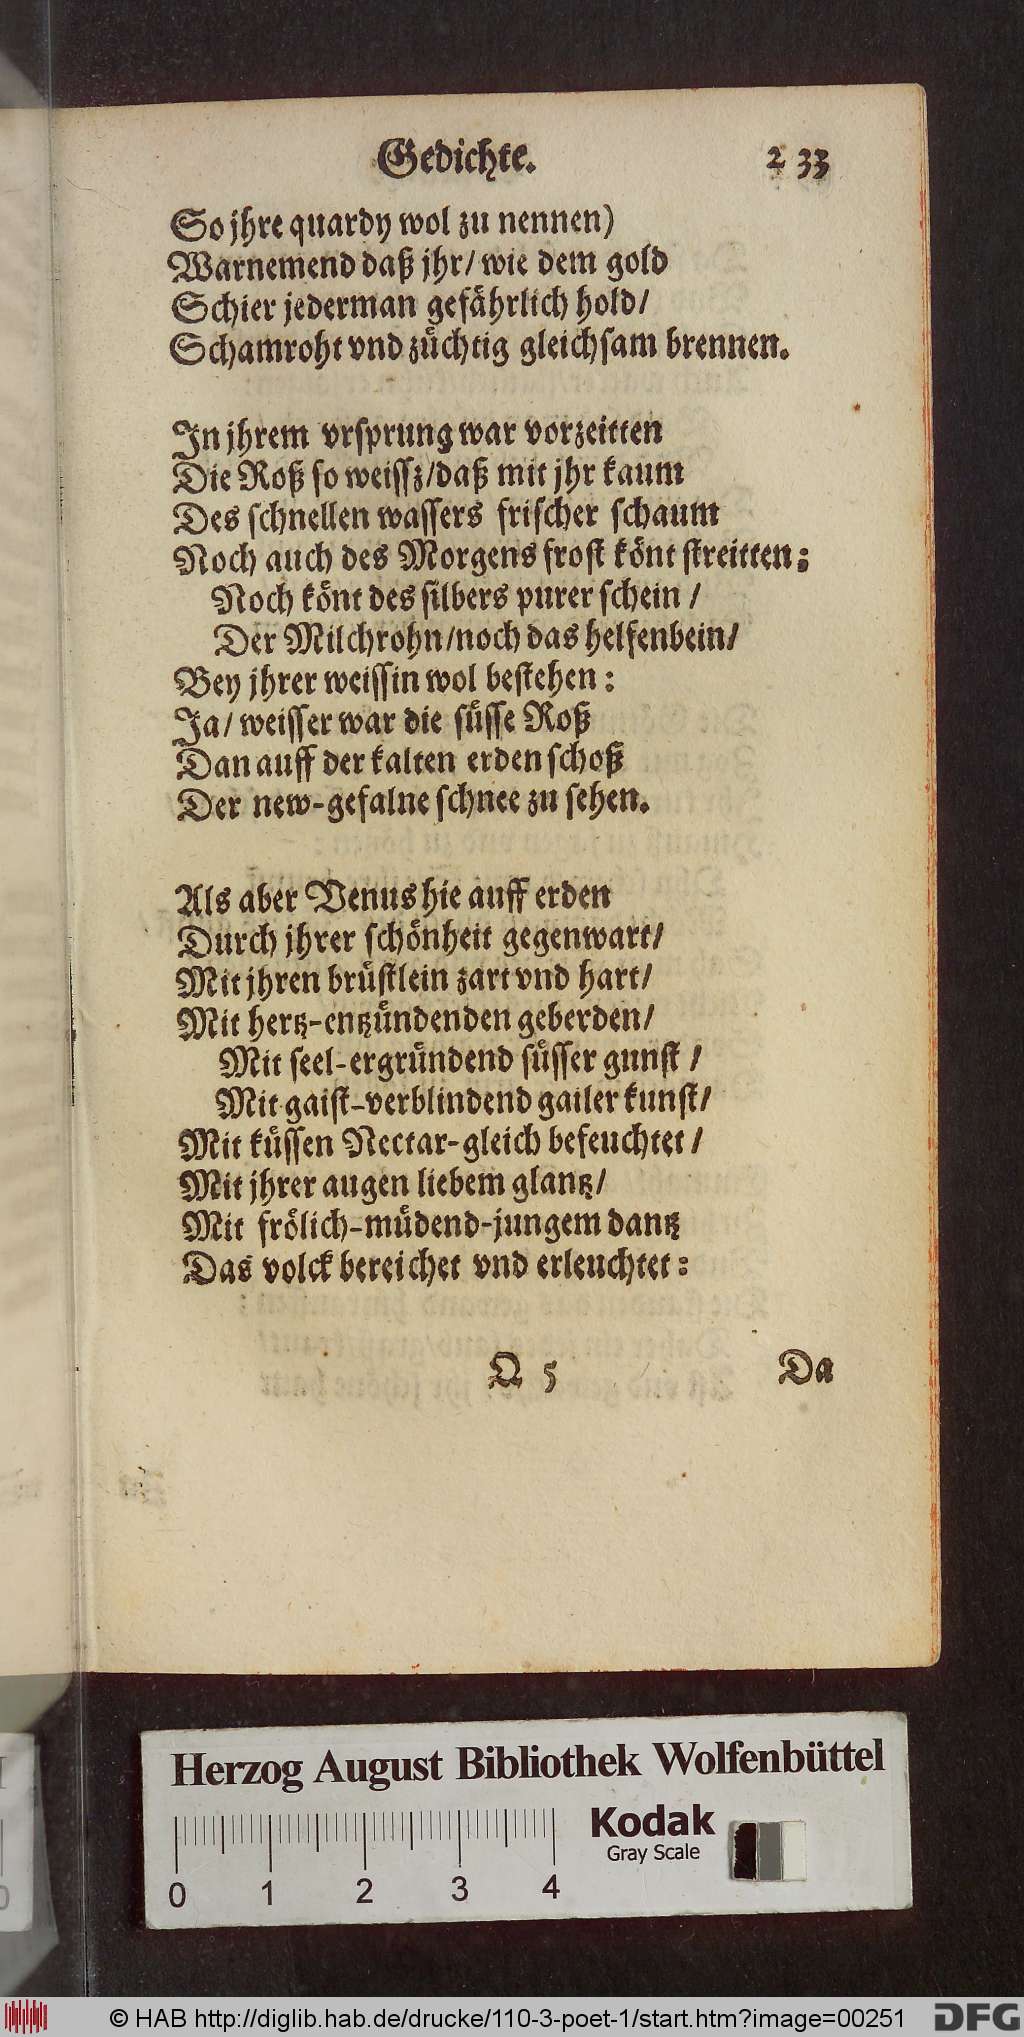 Gedichte. 233
So jhre quardy wol zu nennen)
Warnemend daß jhr/ wie dem gold
Schier jederman gefährlich hold/
Schamroht vnd züchtig gleichsam brennen.
In jhrem vrsprung war vorzeitten
Die Roß so weissz/daß mit jhr kaum
Des schnellen wassers frischer schaum
Noch auch des Morgens frost könt streitten:
Noch könt des silbers purer schein /
Der Milchrohn/noch das helfenbein/
Bey jhrer weissin wol bestehen:
Ja/ weisser war die süsse Roß
Dan auff der kalten erden schoß
Der new-gefalne schnee zu sehen.
Als aber Venus hie auff erden
Durch jhrer schönheit gegenwart/
Mit jhren brüstlein zart vnd hart/
Mit hertz-entzündenden geberden/
Mit seel-ergründend süsser gunst /
Mit gaist-verblindend gailer kunst/
Mit küssen Nectar-gleich befeuchtet /
Mit jhrer augen liebem glantz/
Mit frölich-müdend-jungem dantz
Das volck bereichet vnd erleuchtet:
Q 5 Da
Herzog August Bibliothek Wolfenbüttel
Kodak
Gray Scale
0 1 2 3 4
© HAB http://diglib.hab.de/drucke/110-3-poet-1/start.htm?image=00251
DFG